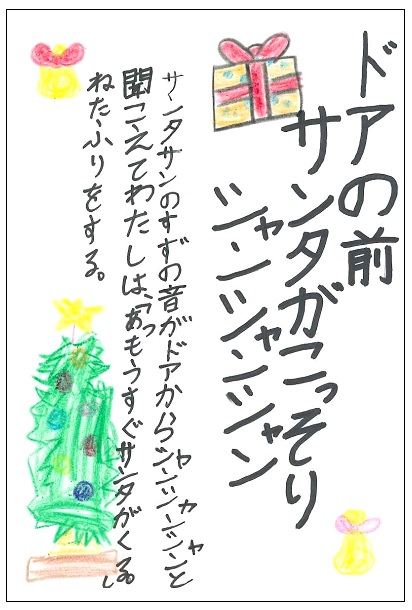 ドアの前
サンタがこっそり
シャンシャンシャン
サンタサンのすずの音がドアからシャンシャンシャンと
聞こえてわたしは、「あっもうすぐサンタがくる。」
ねたふりをする。